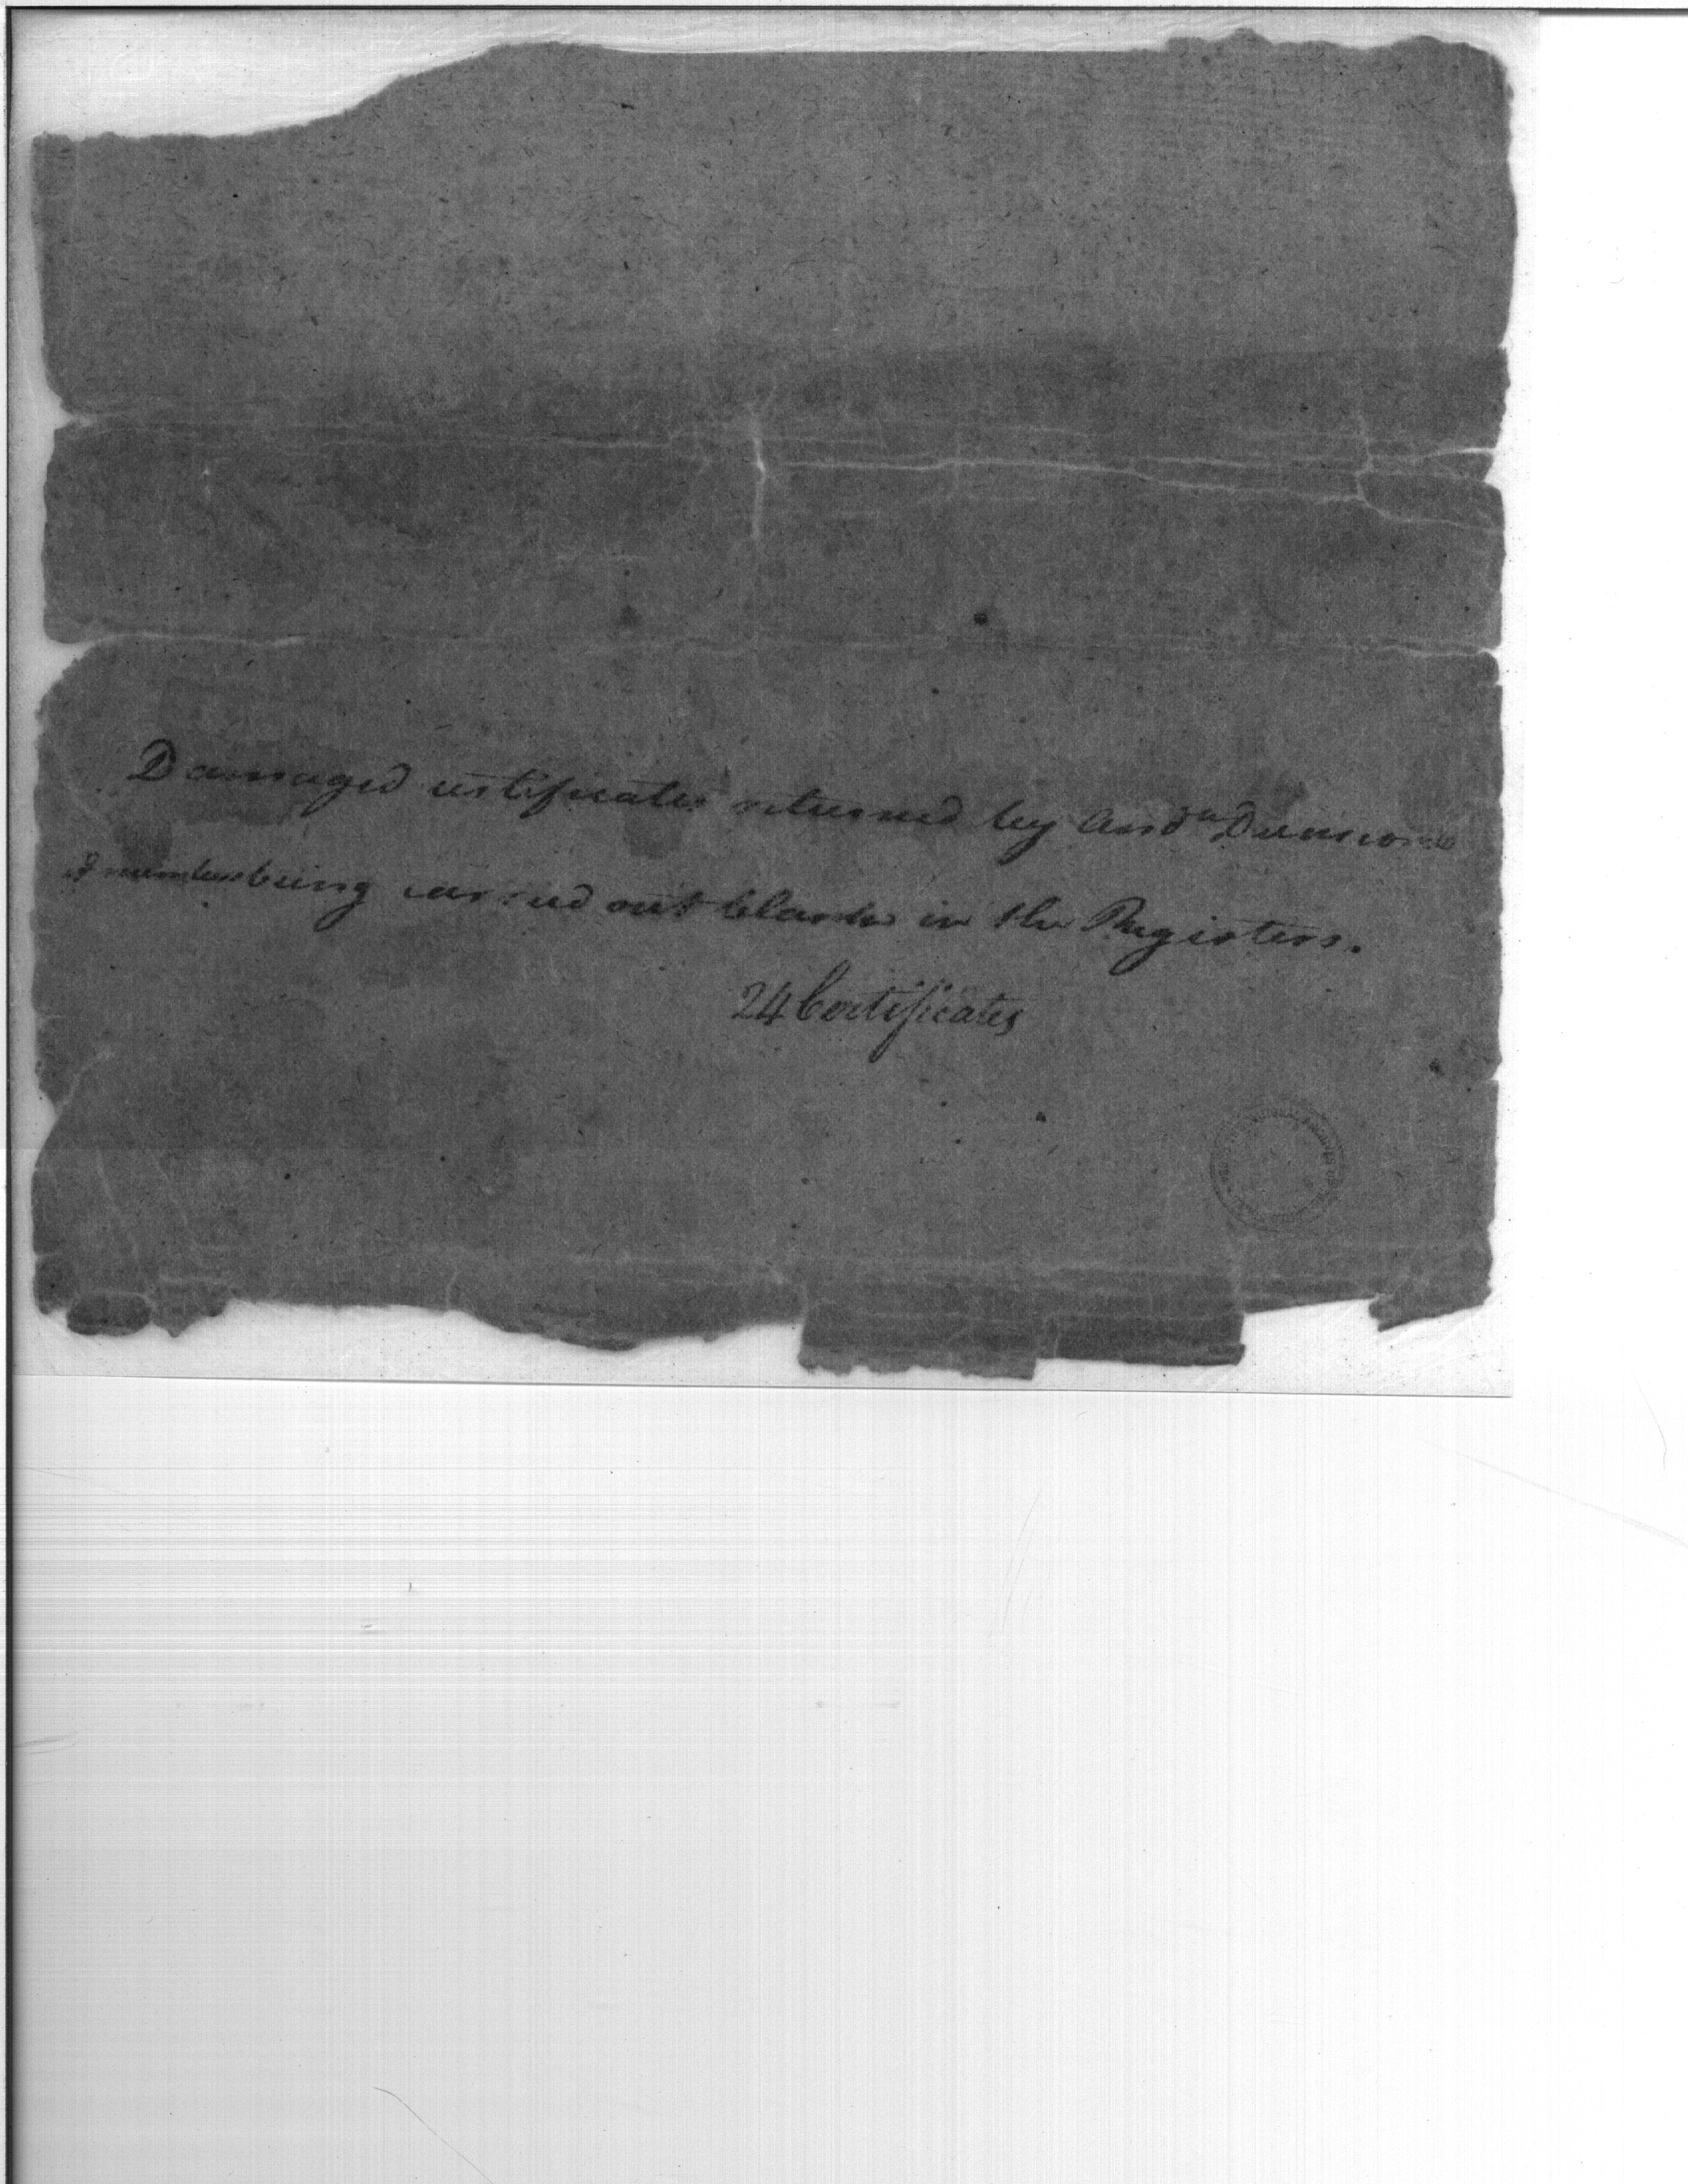 Damaged certificates returned by And^w Dunscomb
& numbers being carried out blank in the Registers.
24 Certificates